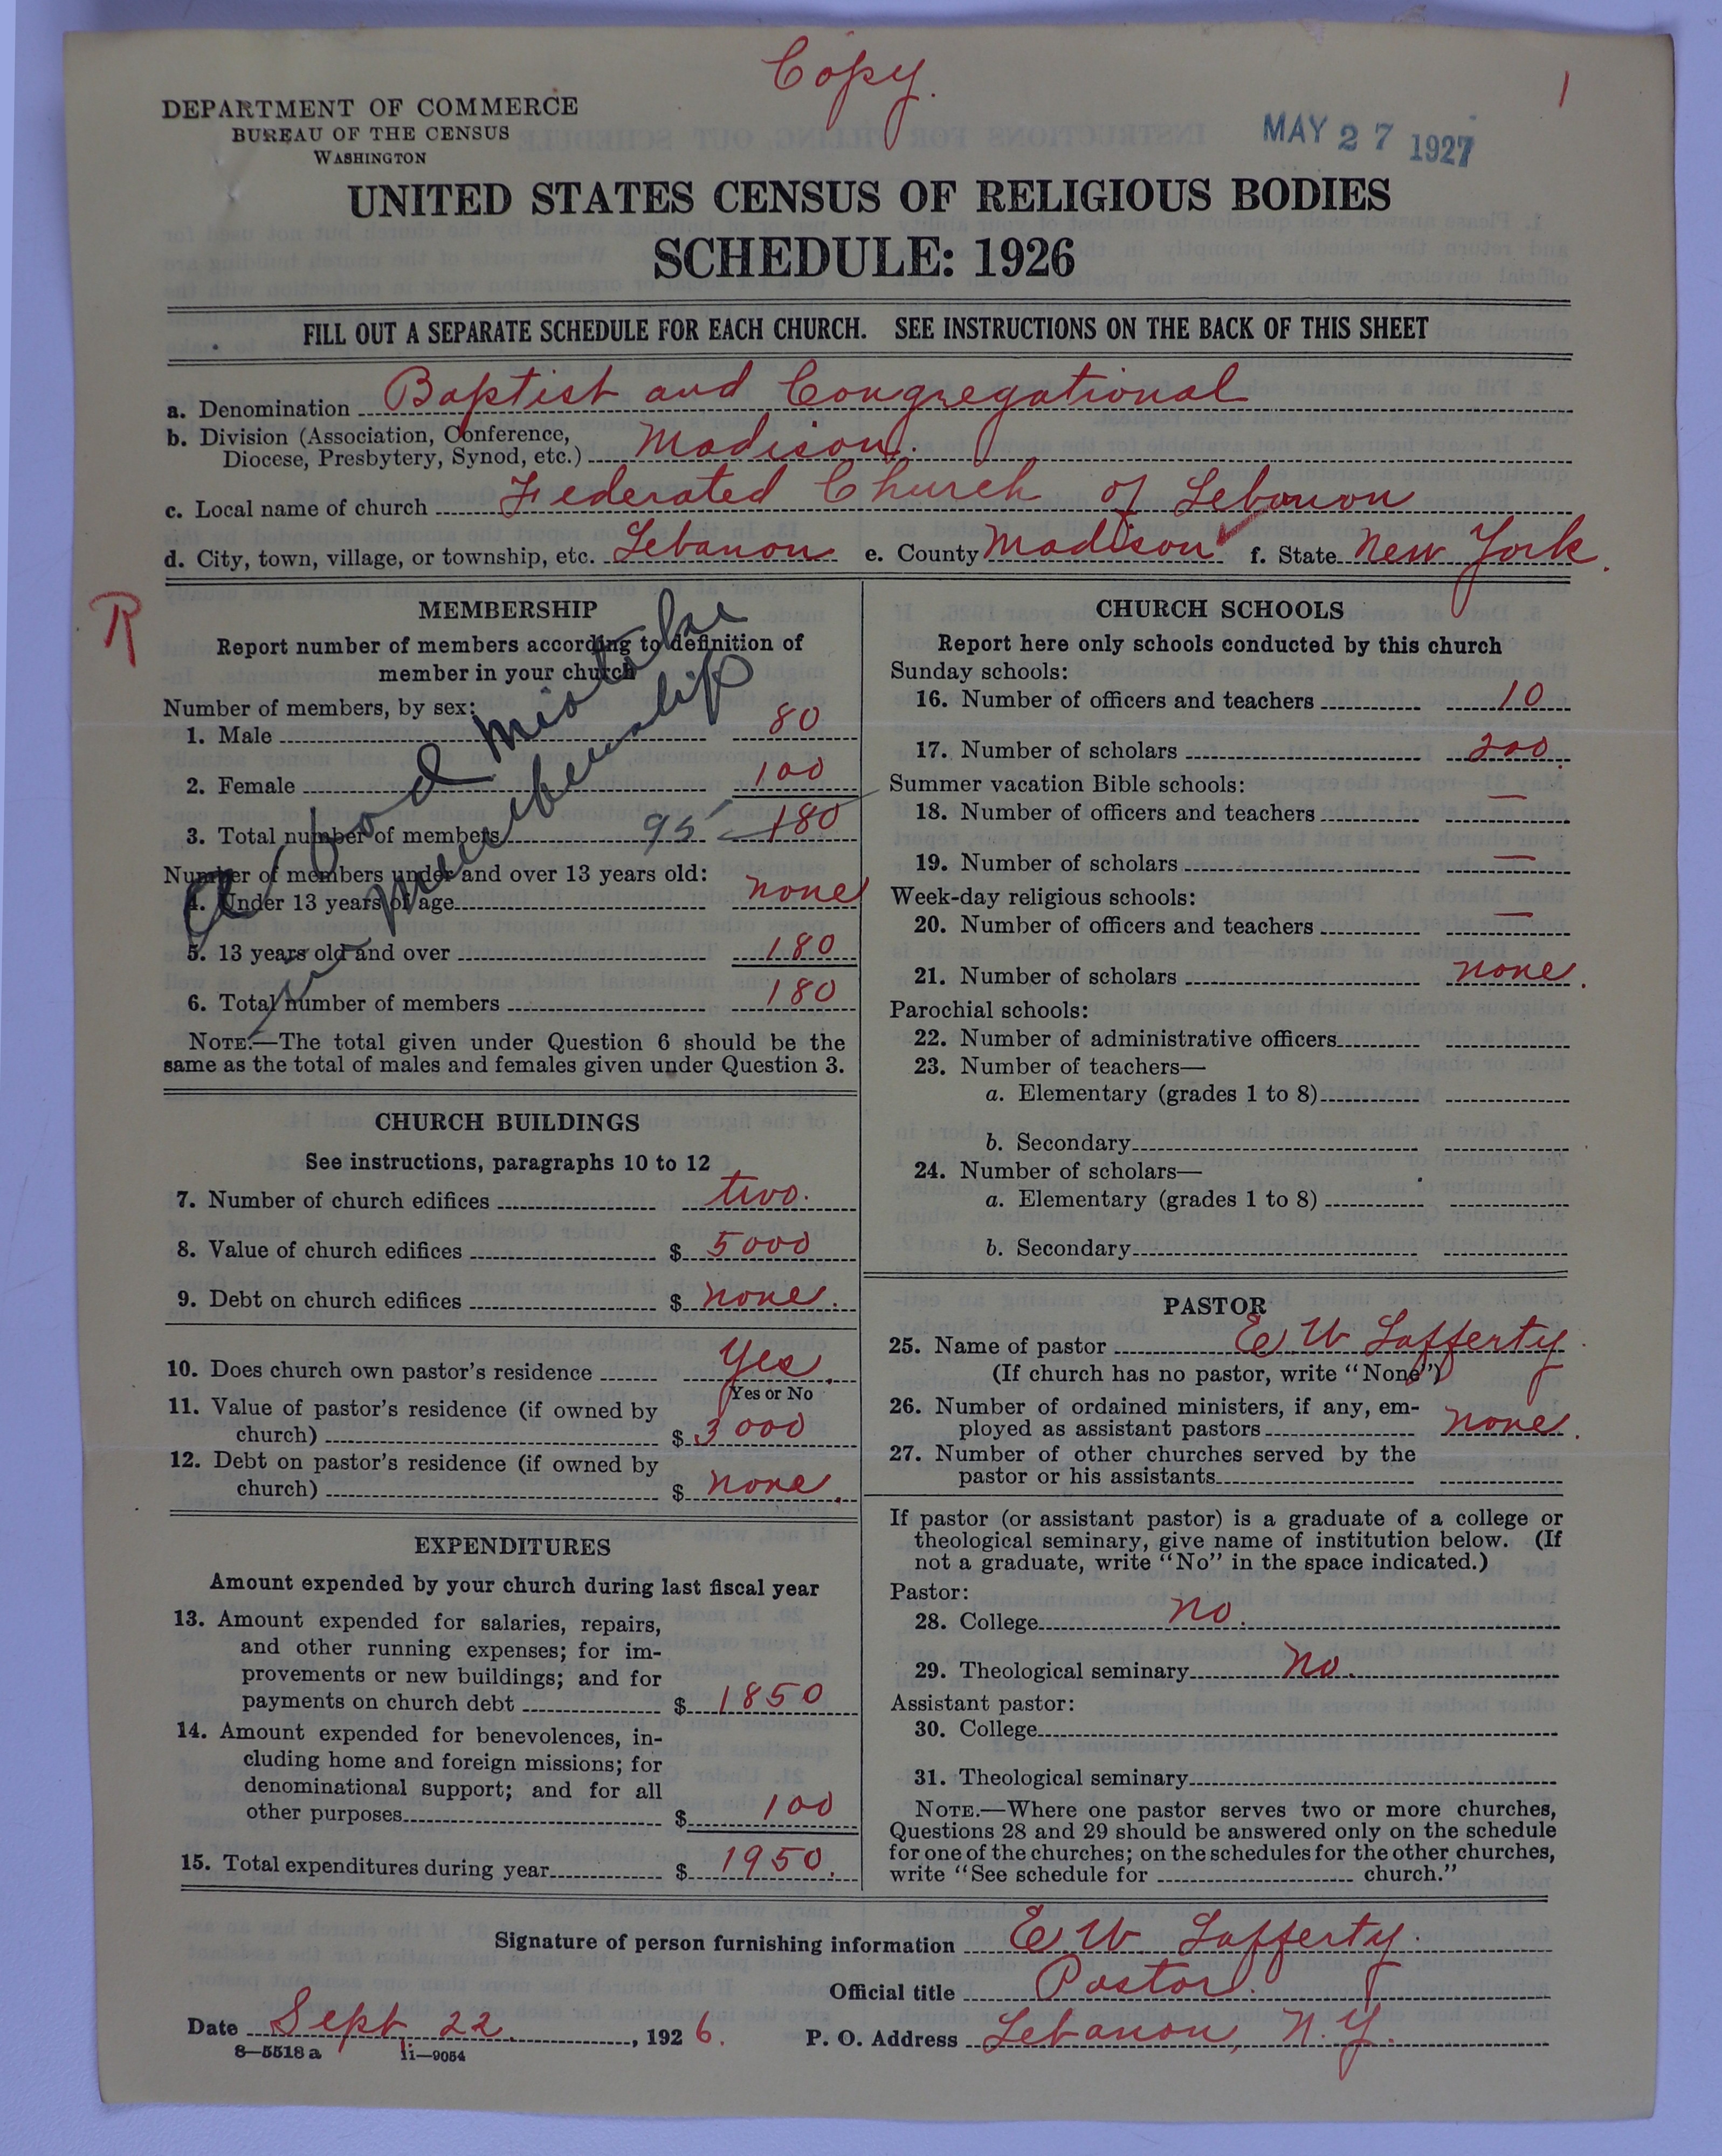 Copy.
1
DEPARTMENT OF COMMERCE
BUREAU OF THE CENSUS
WASHINGTON
MAY 27 1927
UNITED STATES CENSUS OF RELIGIOUS BODIES
SCHEDULE: 1926
FILL OUT A SEPARATE SCHEDULE FOR EACH CHURCH. SEE INSTRUCTIONS ON THE BACK OF THIS SHEET
a. Denomination Baptist and Congregational
b. Division (Association, Conference,
Diocese, Presbytery, Synod, etc.) Madison.
c. Local name of church Federated Church of Lebanon
d. City, town, village, or township, etc. Lebanon e. County Madison f. State New York.
R
MEMBERSHIP
Report number of members according to definition of
member in your church
a bad mistake
in membership
Number of members, by sex:
1. Male 80
2. Female 100
3. Total number of members 95 180
Number of members under and over 13 years old:
4. Under 13 years of age none
5. 13 years old and over 180
6. Total number of members 180
NOTE.—The total given under Question 6 should be the
same as the total of males and females given under Question 3.
CHURCH BUILDINGS
See instructions, paragraphs 10 to 12
7. Number of church edifices two.
8. Value of church edifices $ 5000
9. Debt on church edifices $ none.
10. Does church own pastor's residence Yes.
Yes or No
11. Value of pastor's residence (if owned by
church) $ 3000
12. Debt on pastor's residence (if owned by
church) $ none.
EXPENDITURES
Amount expended by your church during last fiscal year
13. Amount expended for salaries, repairs,
and other running expenses; for im-
provements or new buildings; and for
payments on church debt $ 1850
14. Amount expended for benevolences, in-
cluding home and foreign missions; for
denominational support; and for all
other purposes $ 100
15. Total expenditures during year $ 1950.
CHURCH SCHOOLS
Report here only schools conducted by this church
Sunday schools:
16. Number of officers and teachers 10
17. Number of scholars 200.
Summer vacation Bible schools:
18. Number of officers and teachers —
19. Number of scholars —
Week-day religious schools:
20. Number of officers and teachers —
21. Number of scholars none.
Parochial schools:
22. Number of administrative officers
23. Number of teachers—
a. Elementary (grades 1 to 8)
b. Secondary
24. Number of scholars—
a. Elementary (grades 1 to 8)
b. Secondary
PASTOR
25. Name of pastor E. W. Lafferty
(If church has no pastor, write "None")
26. Number of ordained ministers, if any, em-
ployed as assistant pastors none.
27. Number of other churches served by the
pastor or his assistants
If pastor (or assistant pastor) is a graduate of a college or
theological seminary, give name of institution below. (If
not a graduate, write "No" in the space indicated.)
Pastor:
28. College no.
29. Theological seminary No.
Assistant pastor:
30. College
31. Theological seminary
NOTE.—Where one pastor serves two or more churches,
Questions 28 and 29 should be answered only on the schedule
for one of the churches; on the schedules for the other churches,
write "See schedule for church."
Signature of person furnishing information E. W. Lafferty.
Official title Pastor.
Date Sept 22, 1926. P. O. Address Lebanon, N.Y.
8—5518 a 11—9054